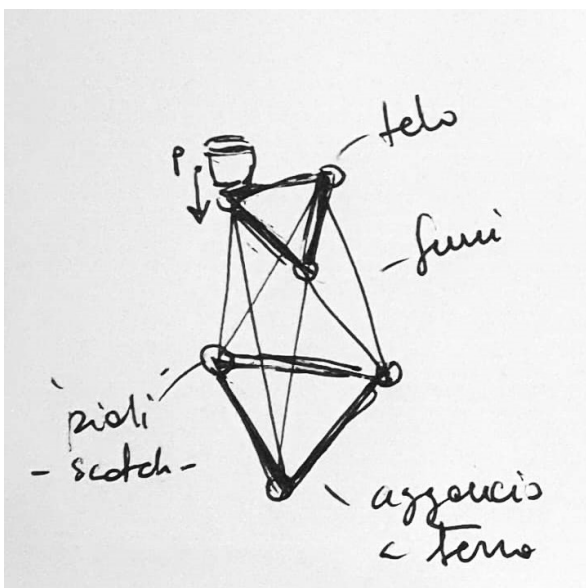 telo
P
funi
'pioli'
- scotch -
aggancio
a terra